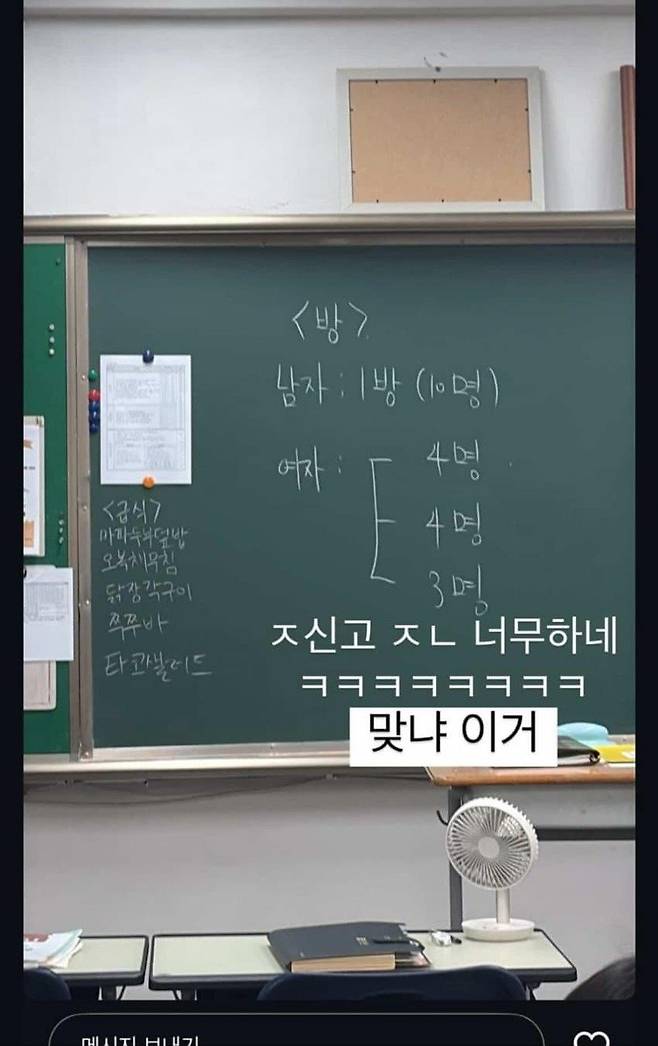 <방>
남자 : 1방 (10명)
여자 :
4명
4명
3명
<급식>
마파두부덮밥
오복채무침
닭장각구이
쭉쭈바
타코샐러드
ㅈ신고 ㅈㄴ 너무하네
ㅋㅋㅋㅋㅋㅋㅋㅋ
맞냐 이거
메시지 보내기